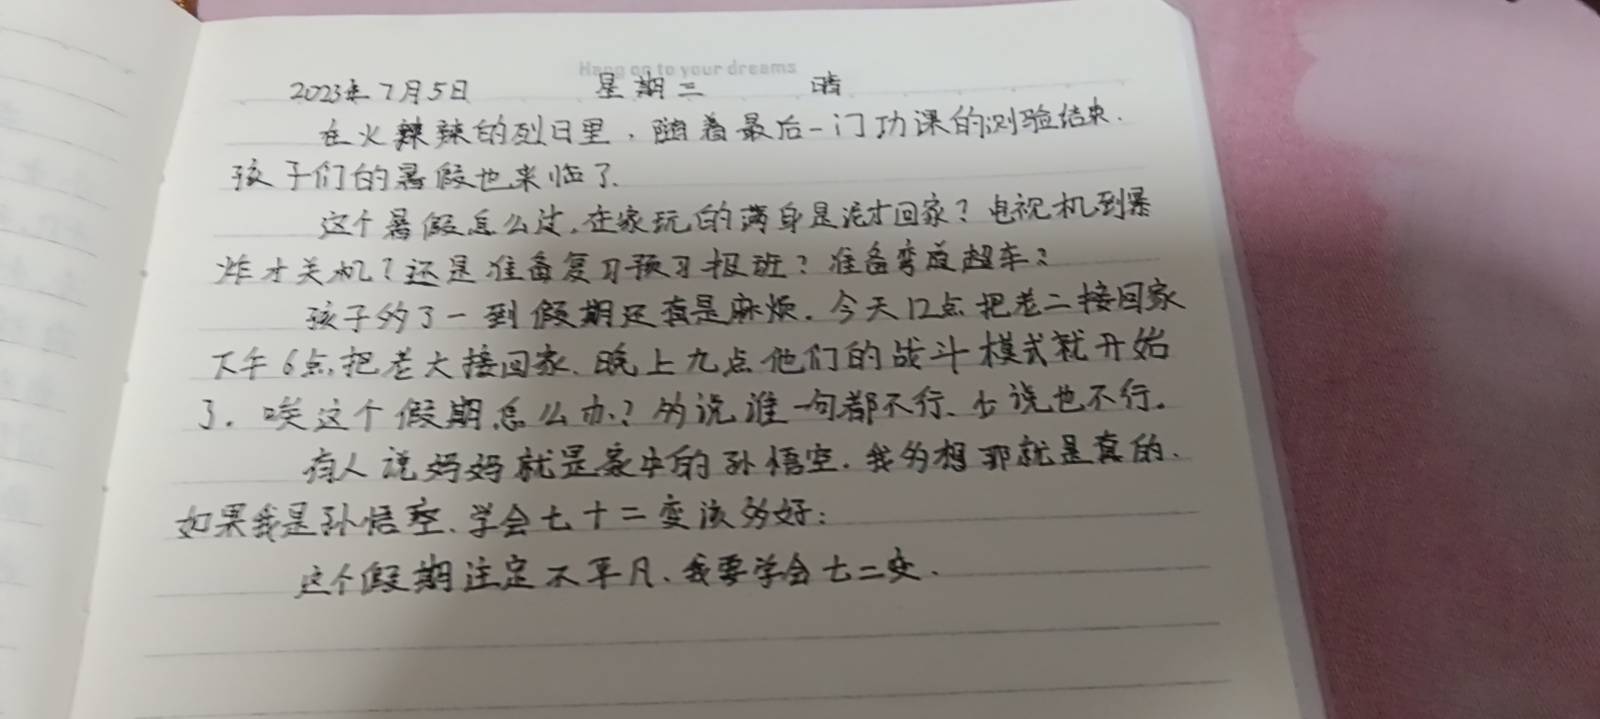 Hang on to your dreams
2023年7月5日 星期三 晴
在火辣辣的烈日里，随着最后一门功课的测验结束.
孩子们的暑假也来临了.
这个暑假怎么过.在家玩的满身是泥才回家？电视机到暴
炸才关机？还是准备复习预习报班？准备弯道超车？
孩子多了一到假期还真是麻烦.今天12点把老二接回家
下午6点.把老大接回家.晚上九点他们的战斗模式就开始
了.唉这个假期怎么办？多说谁一句都不行、少说也不行。
有人说妈妈就是家中的孙悟空.我多想那就是真的.
如果我是孙悟空.学会七十二变该多好;
这个假期注定不平凡.我要学会七二变.